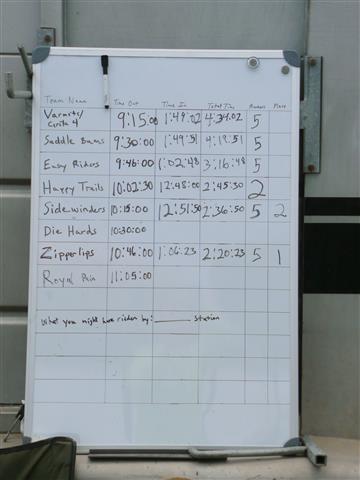 Team Name Time Out Time In Total Time Riders Place
Varmits/
Crita 4 9:15:00 1:49:02 4:34:02 5
Saddle Bums 9:30:00 1:49:51 4:19:51 5
Easy Riders 9:46:00 1:02:48 3:16:48 5
Happy Trails 10:02:30 12:48:00 2:45:30 2
Sidewinders 10:15:00 12:51:50 2:36:50 5 2
Die Hards 10:30:00
Zipperlips 10:46:00 1:06:23 2:20:23 5 1
Royal Pain 11:05:00
What you might have ridden by: Station